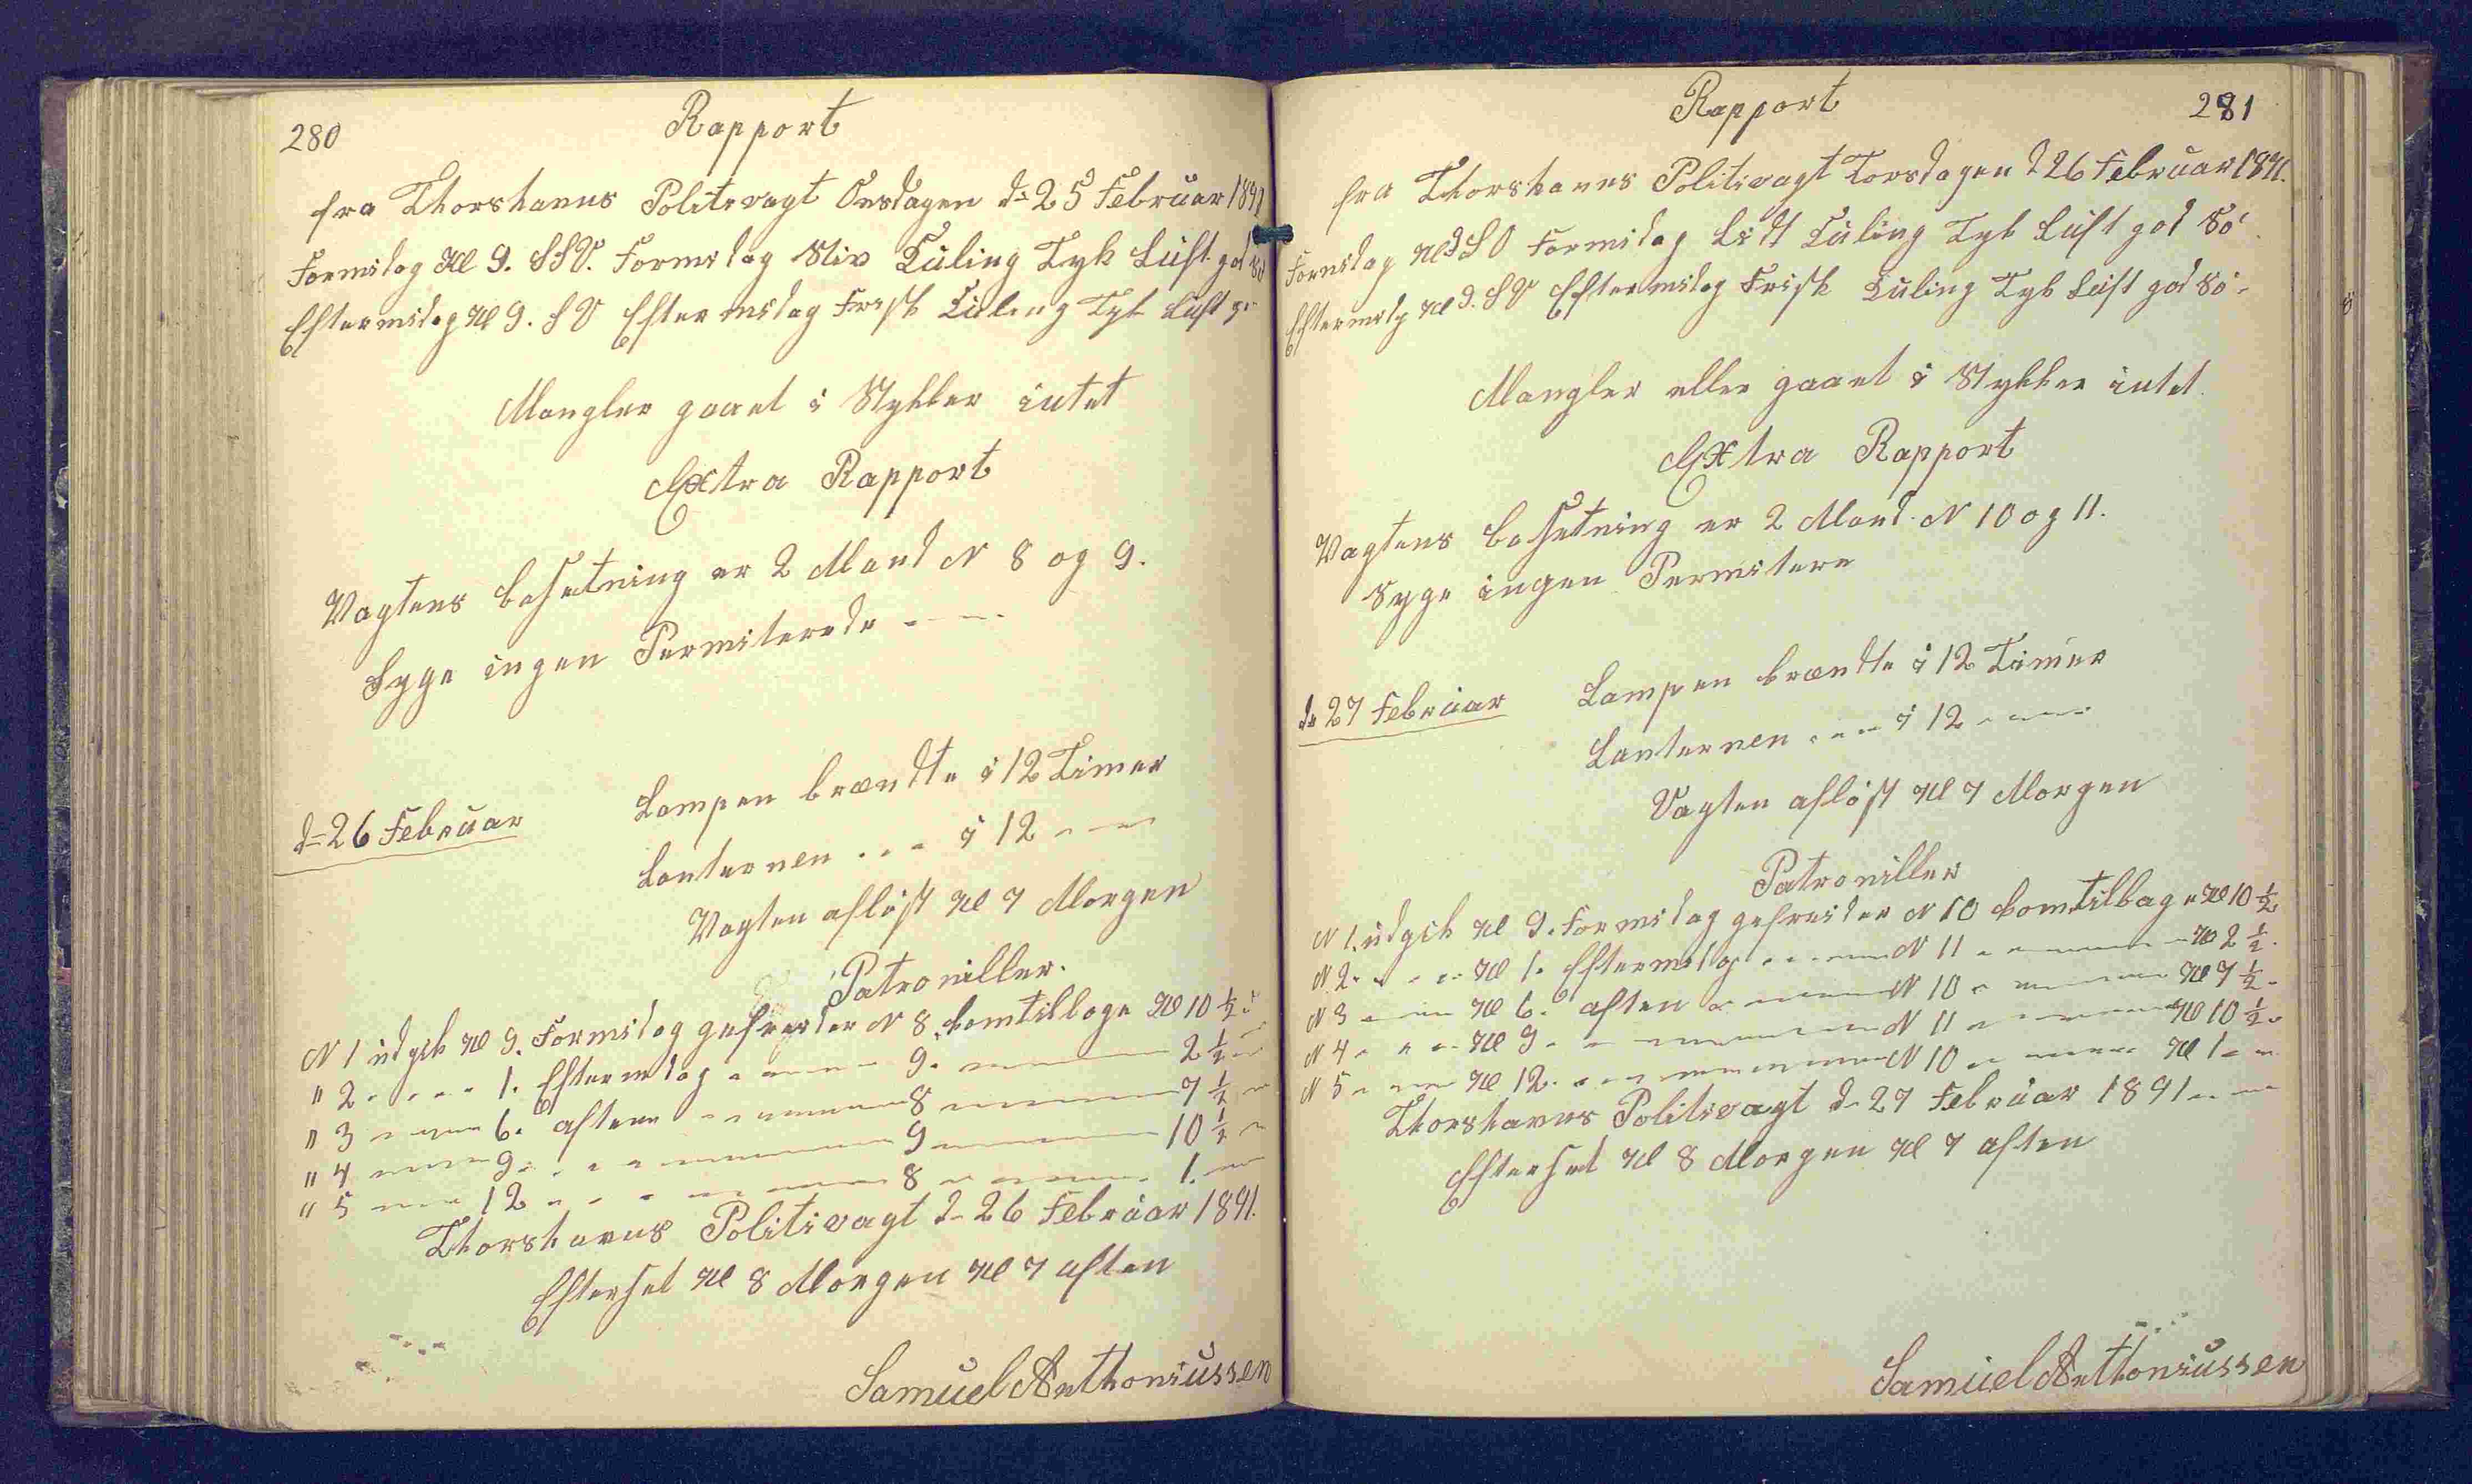 280
Rapport
fra Thorshavns Politivagt Onsdagen d= 25 Februar 1891
Formidag Kl 9. SSV. Formidag Stiv Kuling Tyk Luft god Sö
Eftermidag Kl 9. SV Eftermidag Frisk Kuling Tyk Luft go
Mangler gaaet i Stykker intet
Extra Rapport
Vagtens besetning er 2 Mand N 8 og 9.
Syge ingen Permiterede - - -
d= 26 Februar
Lampen brændte i 12 Timer
Lanternen - - - i 12 - - -
Vagten aflöst Kl 7 Morgen
Patroniller.
N 1 udgik Kl 9. Formidag gefreider N 8. komtilbage Kl 10 ½
" 2 - - - - 1. Eftermidag - - - - 9. - - - - 2 ½ -
" 3 - - - 6. aften - - - - 8 - - - - 7 ½ -
" 4 - - - 9. - - - - - 9 - - - - 10 ½ -
" 5 - - - 12 - - - - - 8 - - - - 1. -
Thorshavns Politivagt d= 26 Februar 1891.
Efterset Kl 8 Morgen Kl 7 aften
Samuel Anthoniussen
281
Rapport
fra Thorshavns Politivagt Torsdagen d 26 Februar 1891.
Formidag Kl 9 SO Formidag Lidt Kuling Tyk Luft god Sö
Eftermidg Kl 9. SV Eftermidag Frisk Kuling Tyk Luft god Sö -
Mangler eller gaaet i Stykker intet.
Extra Rapport
Vagtens besetning er 2 Mand N 10 og 11.
Syge ingen Permitere
d= 27 Februar
Lampen brændte i 12 Timer
Lanternen - - - i 12 - - -
Vagten aflöst Kl 7 Morgen
Patroniller
N 1. udgik Kl 9. Formidag gefreider N 10 komtilbage Kl 10 ½
N 2 - - - Kl 1. Eftermidag - - - - N 11 - - - - Kl 2 ½ -
N 3 - - - Kl 6. aften - - - - N 10 - - - - Kl 7 ½ -
N 4 - - - Kl 9 - - - - - N 11 - - - - Kl 10 ½ -
N 5 - - - Kl 12. - - - - - N 10 - - - - Kl 1 - -
Thorshavns Politivagt d= 27 Februar 1891 - - -
Efterset Kl 8 Morgen Kl 7 aften
Samuel Anthoniussen